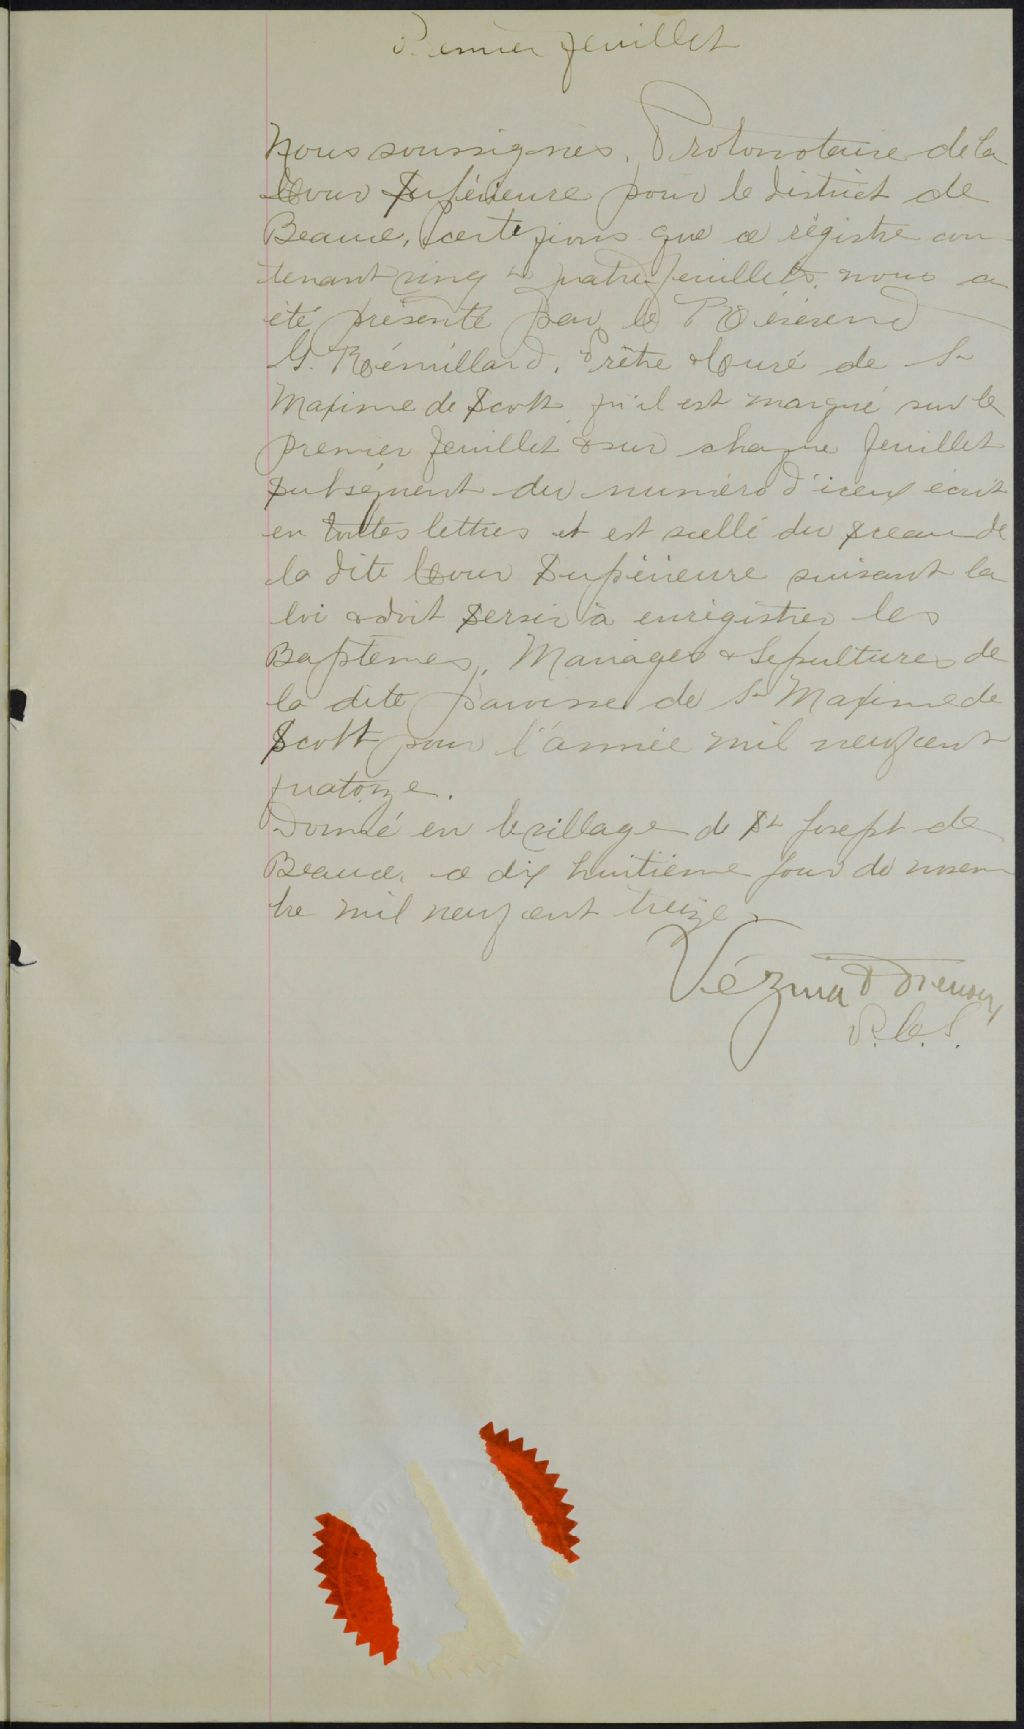 Premier feuillet
Nous soussignés, Protonotaire de la
Cour Supérieure pour le district de
Beauce, certifions que ce régistre con-
tenant vingt quatre feuillets, nous a
été présenté par le Révérend
G. Rémillard, Prêtre & Curé de St
Maxime de Scott qu'il est marqué sur le
premier feuillet & sur chaque feuillet
subséquent du numéro d'iceux écrit
en toutes lettres et est scellé du sceau de
la dite Cour Supérieure suivant la
loi & doit servir à enrégistrer les
Baptêmes, Mariages & Sépultures de
la dite paroisse de St Maxime de
Scott pour l'année mil neuf cent
quatorze.
Donné en le village de St Joseph de
Beauce, ce dix huitième jour de novem
bre mil neuf cent treize
Vézina &
P. C. S.